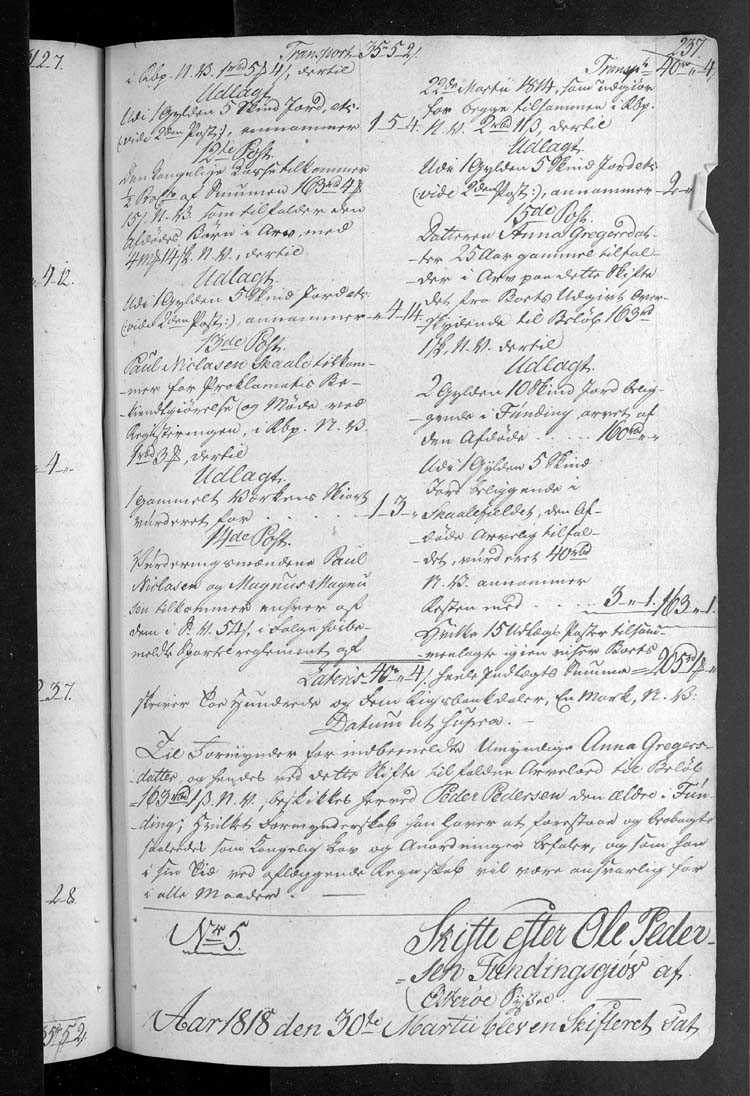 237
Transport 35-5-2
i Rbp. N. V. 1 rbd 5 4, dertil
Udlagt.
Udi 1 Gylden 5 Skind Jord, etc.
(vide 2den Post:), annammer 1-5-4
12te Post.
Den Kongelige Casse tilkommer
1/2 ProCto af Summen 163 rd
15 N. V. som tilfalder den
Afdødes Børn i Arv, med
4 14 N. V., dertil
Udlagt
Udi 1 Gylden 5 Skind Jord etc.
(vide 2den Post:), annammer - 4-14
13de Post.
Paul Niclasen Skaale tilkom-
mer for Proklamatis Be-
kiendtgiørelse og Møde ved
Registeringen, i Rbp. N. V.
1 rbd 3, dertil
Udlagt.
1 gammelt
vurderet for 1-3-"
14de Post.
Vurderingsmændene Paul
Niclasen og Magnus Magnu
sen tilkommer enhver af
dem i S. V. 54, i følge høibe-
meldte Sportelreglement af
Lateris 40 " 4
Transpt 40 " 4
22de Martii 1814, som udgiør
for begge tilsammen i Rbp.
N. V. 2 rbd 1 ß, dertil
Udlagt.
Udi 1 Gylden 5 Skind Jord etc
(vide 2den Post:), annammer - 2-"
15de Post.
Datteren Anna Gregersdat-
ter 25 Aar gammel tilfal-
der i Arv paa dette Skifte
det fra Boets Udgivt over-
skydende til Beløb 163 rd
1 ß N. V. dertil
Udlagt.
2 Gylden 10 Skind Jord belig-
gende i Funding, arvet af
den Afdøde 160 rd "
Udi 1 Gylden 5 Skind
Jord beliggende i
Skaalefieldet, den Af-
døde Arvelig tilfal-
det, vurderet 40 rbd
N. V. annammer
Resten med 3-"-1. 163-"-1.
Hvilke 15 Udlægs Poster tilsam-
menlagte igien viser Boets
heele Indtægts Summa = 205 rd 1
skriver Toe Hundrede og Fem Rigsbankdaler, En Mark, N. V.
Datum ut supra.
Til Formynder for indbemeldte Umyndige Anna Gregers-
datter, og hendes ved dette Skifte tilfaldne Arvelod til Beløb
163 rbd 1 ß. N. V., beskikkes herved Peder Pedersen den ældre i Fun-
ding; hvilket Formynderskab han haver at forestaae og iagtage
saaledes som Kongelig Lov og Anordninger befaler, og som han
i sin Tid ved aflæggende Regnskab vil være ansvarlig for
i alle Maader.
Nr 5.
Skifte efter Ole Peder-
sen Fundingsgiøv af
Østerøe Syssel
Aar 1818 den 30te Martii blev en Skifteret sat
127.
" 4-12.
- 4 -".
237.
28.
35-5-2